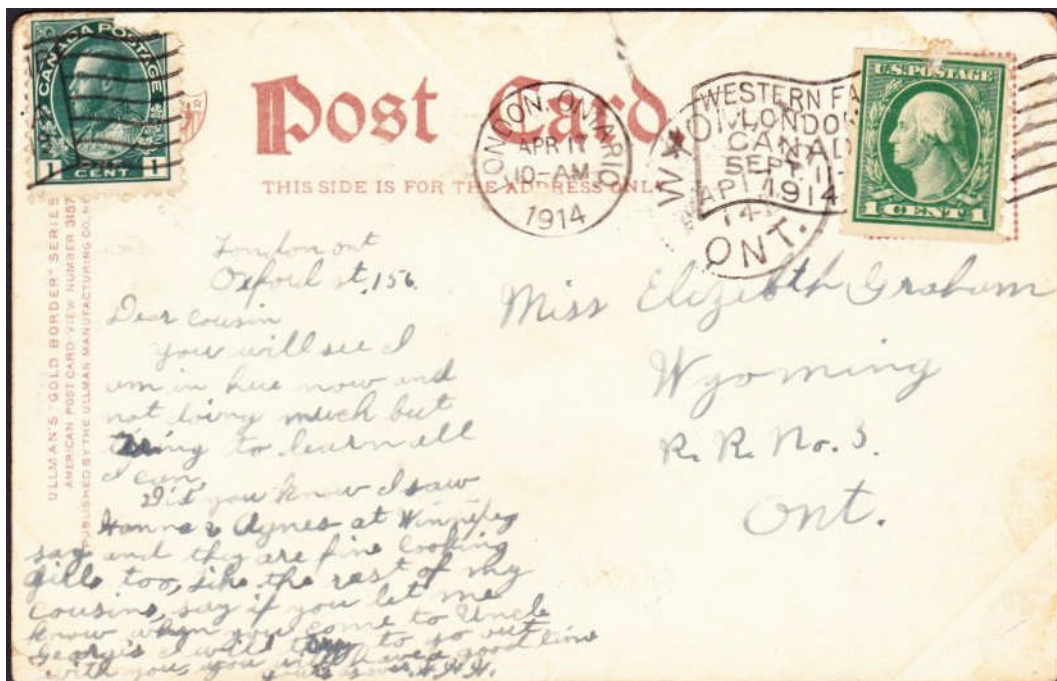 CANADA POSTAGE
1 CENT 1
Post Card
THIS SIDE IS FOR THE ADDRESS ONLY
LONDON, ONTARIO
APR 17
10-AM
1914
WESTERN FA
LONDON
CANAD
SEPT. 11-
1914
WYOMING
AP 17
14
ONT.
U.S. POSTAGE
1 CENT 1
ULLMAN'S "GOLD BORDER" SERIES
AMERICAN POST CARD VIEW NUMBER 3157
PUBLISHED BY THE ULLMAN MANUFACTURING CO. NE
London ont
Oxford st, 156.
Dear cousin
you will see I
am in here now and
not doing much but
trying to learn all
I can.
Did you know I saw
& Agnes at Winnipeg
say and they are fine looking
girls too, like the rest of my
cousins, say if you let me
know when you come to Uncle
George's I will try to go out
with you, you will have a good time
yours ever
Miss Elizibeth Graham
Wyoming
R. R. No. 3.
Ont.